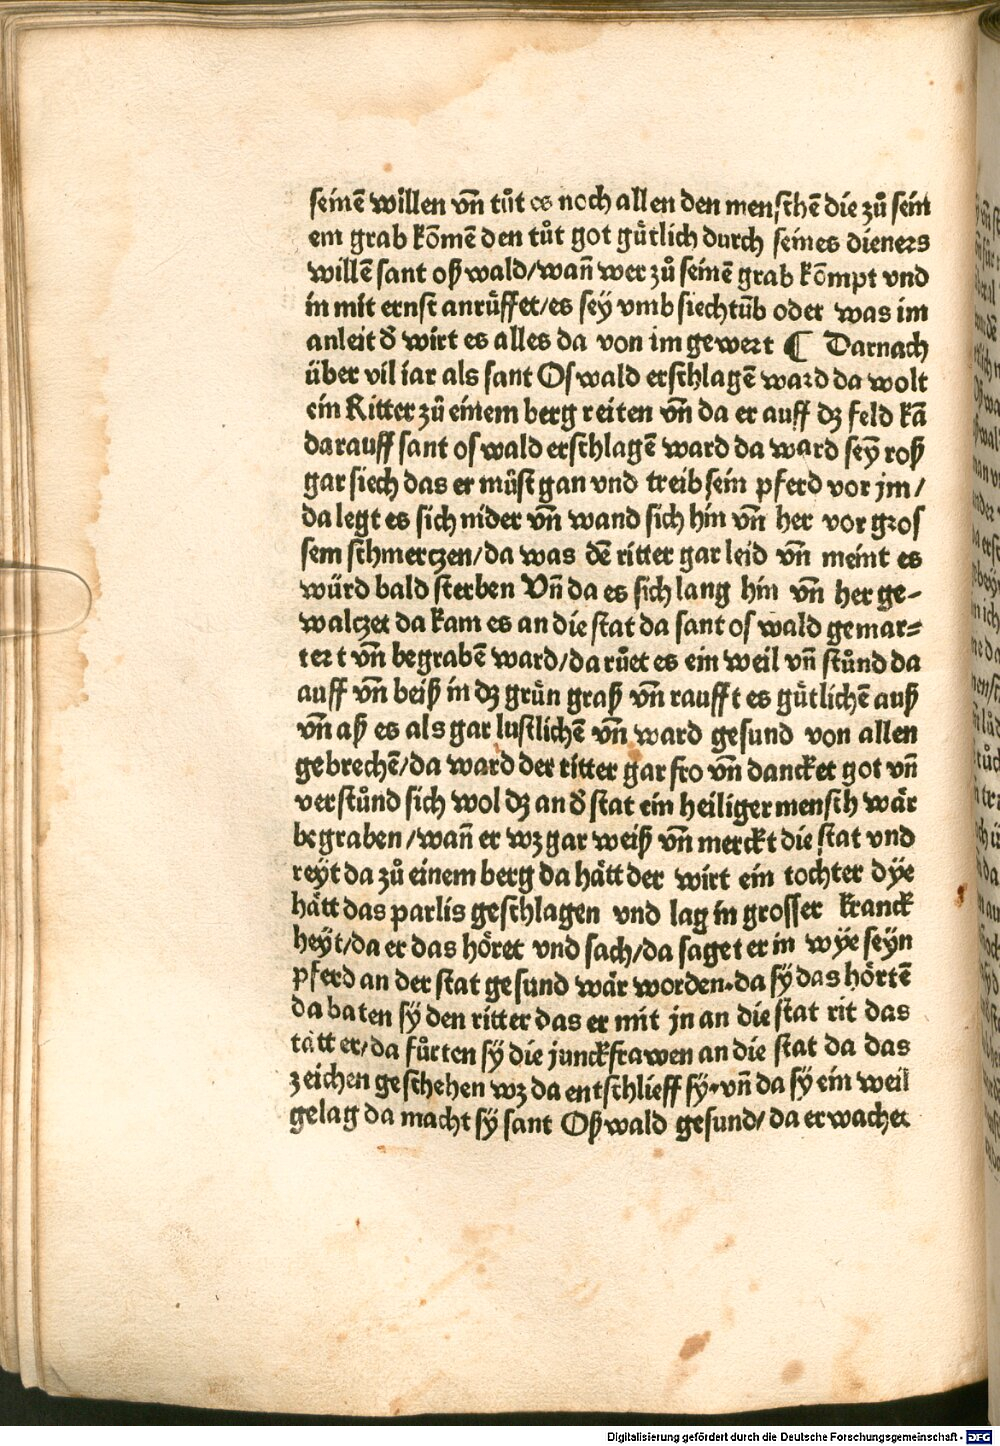 seinē willen vñ tůt es noch allen den menschē die zů sein
em grab kōmē den tůt got gůtlich durch seines dieners
willē sant oßwald/wañ wer zů seinē grab kōmpt vnd
in mit ernst anrůffet/es sey vmb siechtūb oder was im
anleit δ wirt es alles da von im gewert ¶ Darnach
über vil iar als sant Oswald erschlagē ward da wolt
ein Ritter zů einem berg reiten vñ da er auff dz feld kā
darauff sant oswald erschlagē ward da ward seȳ roß
gar siech das er můst gan vnd treib sein pferd vor jm/
da legt es sich nider vñ wand sich hin vñ her vor gros
sem schmerczen/da was dē ritter gar leid vñ meint es
würd bald sterben Vñ da es sich lang hin vñ her ge-
walczet da kam es an die stat da sant oswald gemar-
tert vñ begrabē ward/da růet es ein weil vñ stůnd da
auff vñ beiß in dz grůn graß vñ raufft es gůtlichē auß
vñ aß es als gar lustlichē vñ ward gesund von allen
gebrechē/da ward der ritter gar fro vñ dancket got vñ
verstůnd sich wol dz an δ stat ein heiliger mensch wär
begraben/wañ er wz gar weiß vñ merckt die stat vnd
reÿt da zů einem berg da hått der wirt ein tochter dÿe
hått das parlis geschlagen vnd lag in grosser kranck
heÿt/da er das höret vnd sach/da saget er in wÿe seÿn
pferd an der stat gesund wär worden.da sÿ das hörtē
da baten sÿ den ritter das er mit jn an die stat rit das
tått er/da fůrten sÿ die junckfrawen an die stat da das
zeichen geschehen wz da entschlieff sÿ.vñ da sÿ ein weil
gelag da macht sÿ sant Oßwald gesund/da erwachet
Digitalisierung gefördert durch die Deutsche Forschungsgemeinschaft - DFG